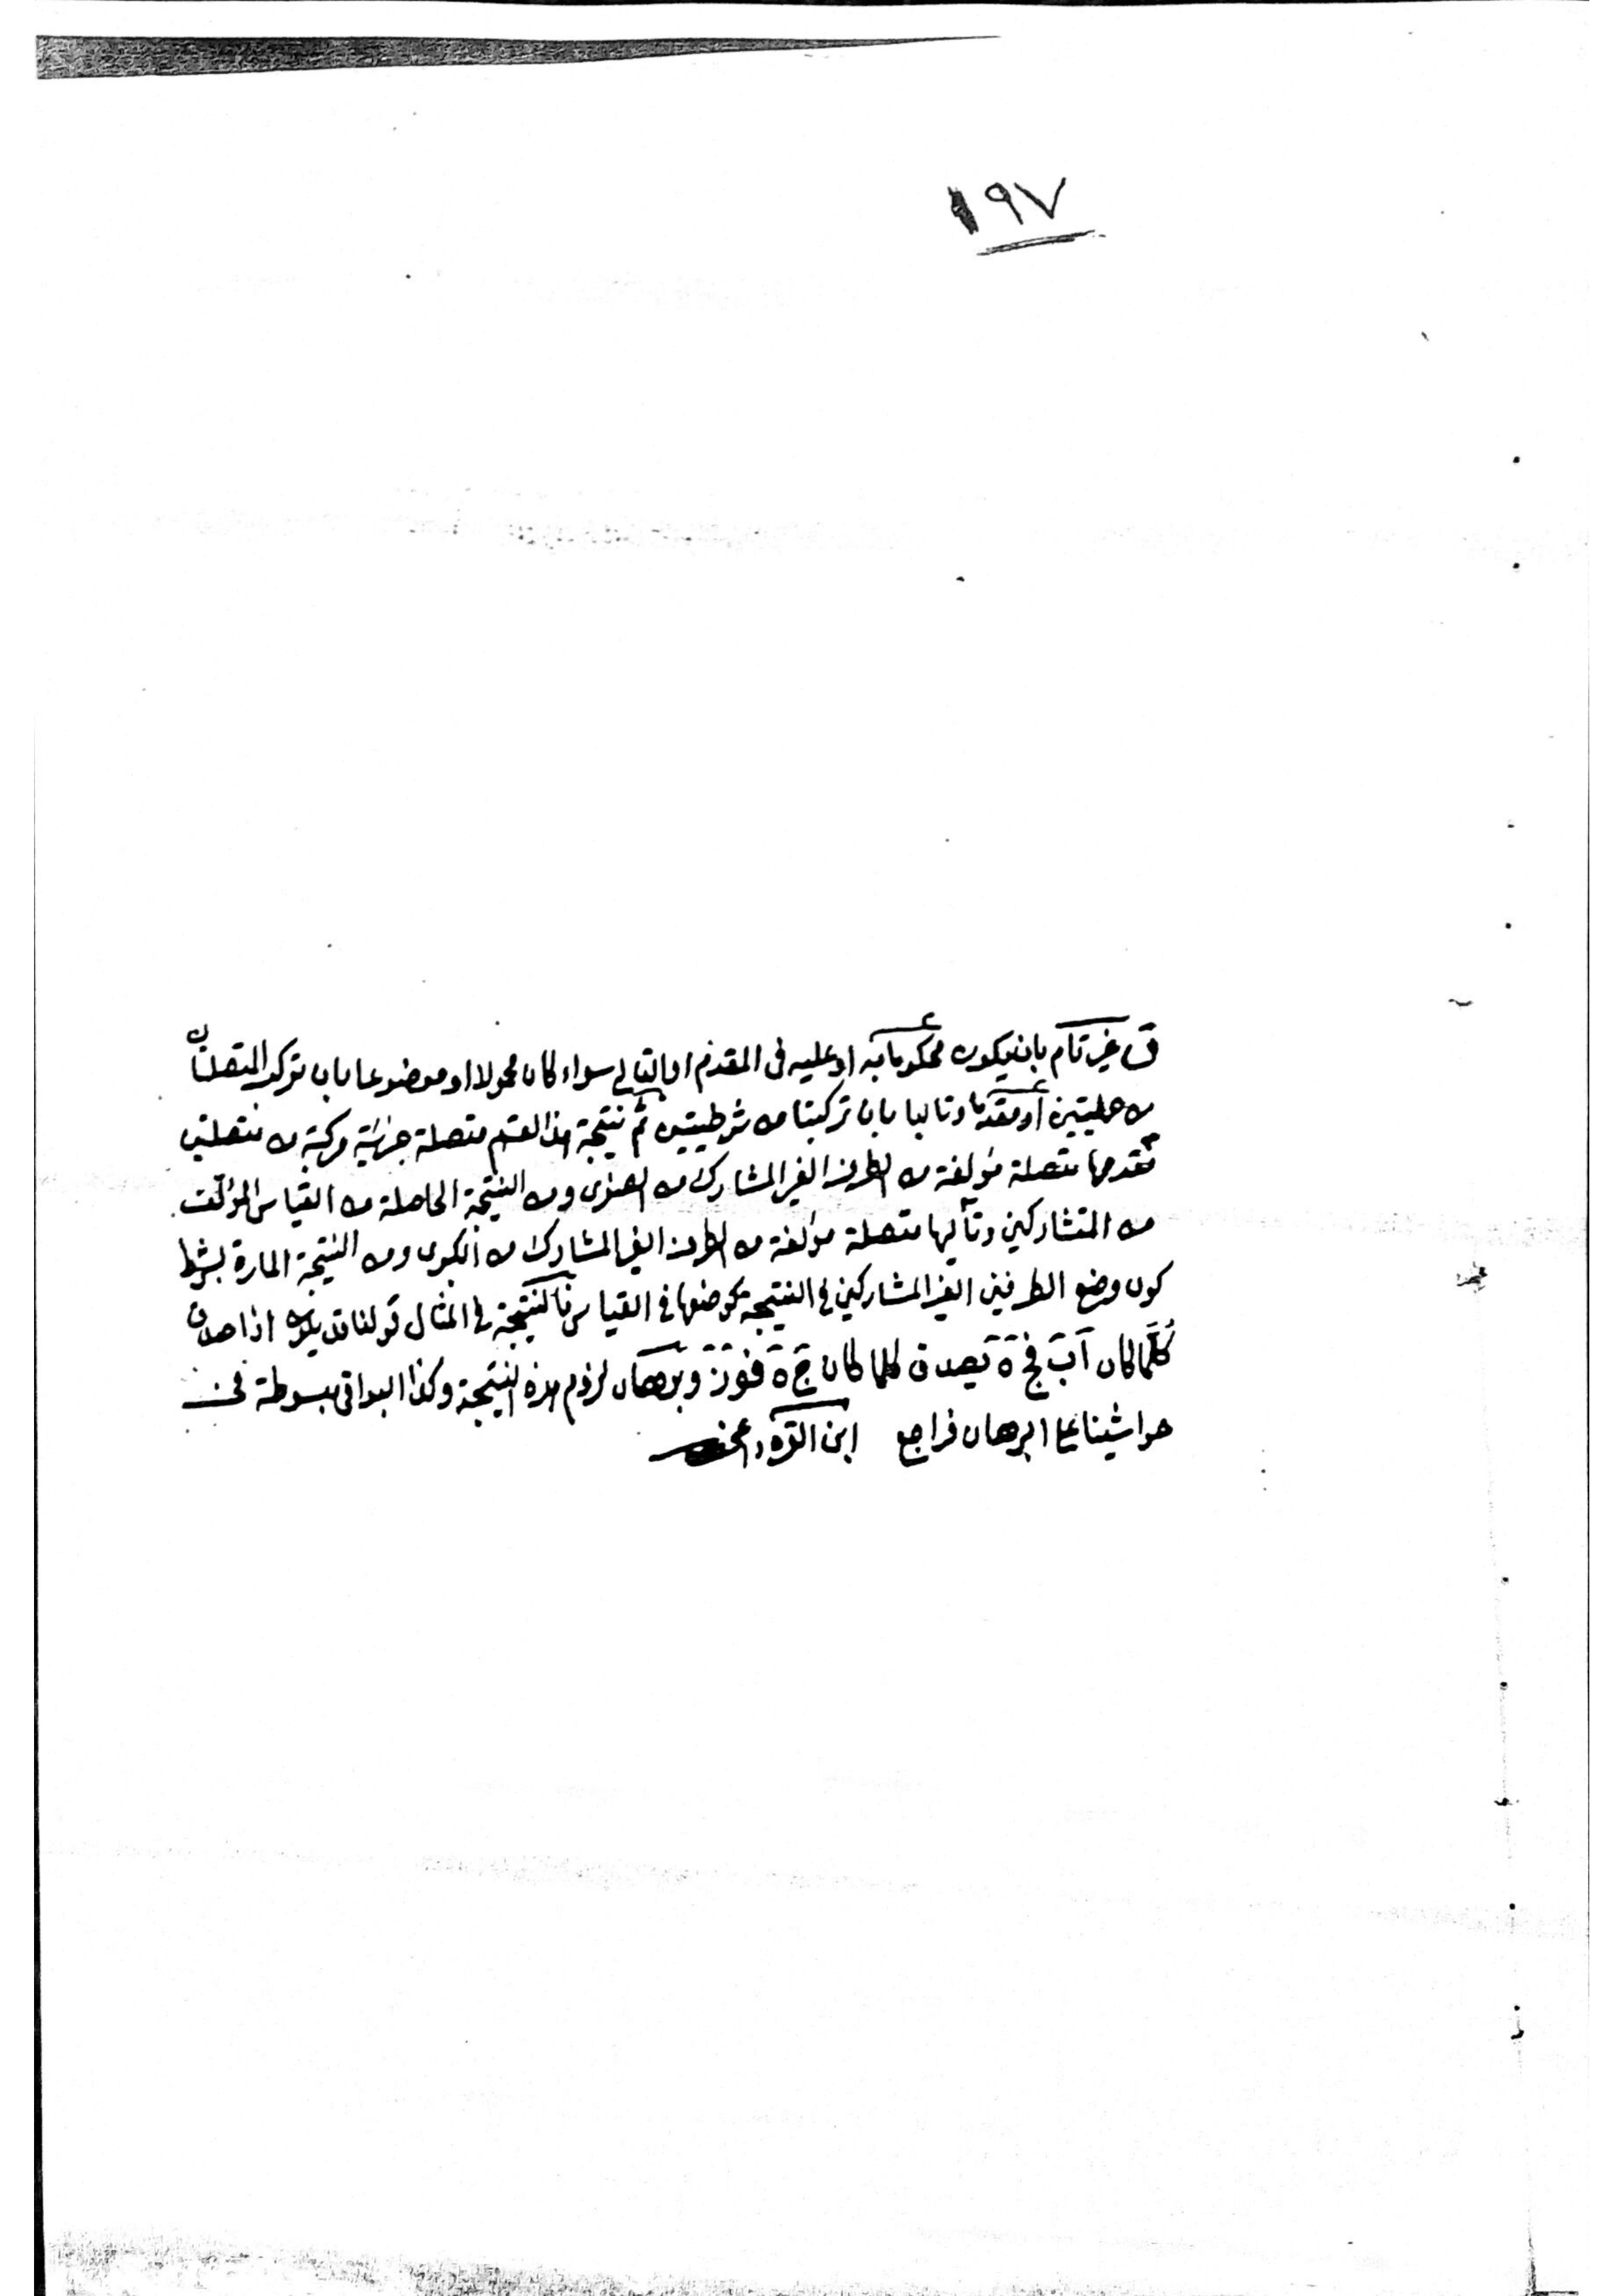 ١٩٧
ق غير تام بان يكون محكوما به او عليه فى المقدم او التالي سواء كان محمولا او موضوعا بان تركب المتصلتان
من حمليتين او مقدما وتاليا بان تركبتا من شرطيتين ثم نتيجة هذا القسم متصلة جزئية مركبة من متصلتين
مقدمها متصلة مؤلفة من الطرف الغير المشارك من الصغرى ومن النتيجة الحاصلة من القياس المؤلف
من المتشاركين وتاليها متصلة مؤلفة من الطرف الغير المشارك من الكبرى ومن النتيجة المارة بشرط
كون وضع الطرفين الغير المشاركين في النتيجة كوضعهما في القياس فالنتيجة في المثال قولنا قد يكون اذا صدق
كلما كان آب فج ه يصدق كلما كان ج ه فوز وبرهان لزوم هذه النتيجة وكذا البواقى مبسوطة في
حواشينا على البرهان فراجع ابن القره داغى